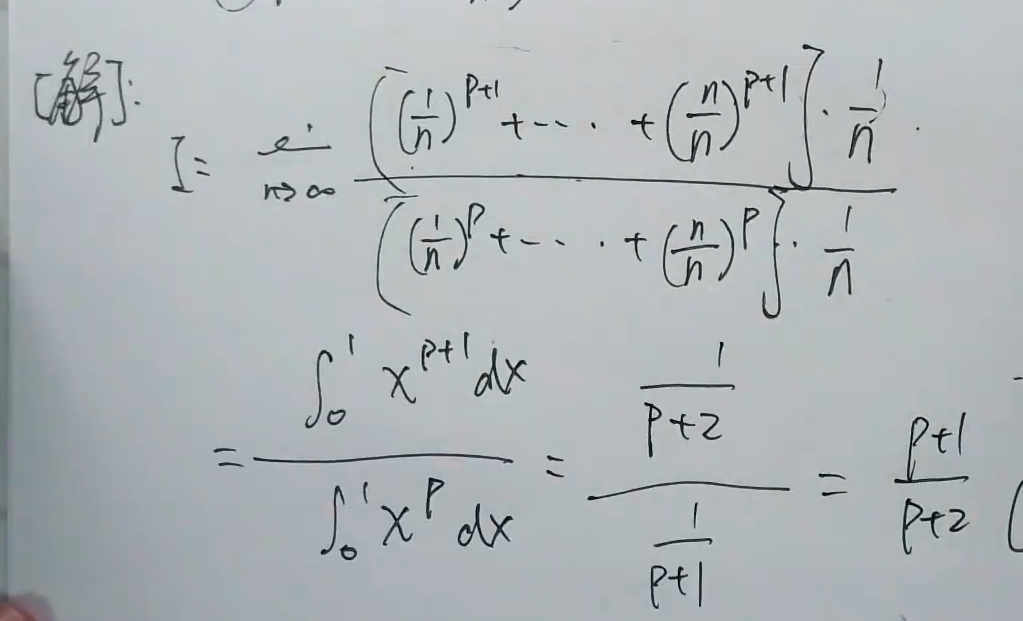 [解]:
I = lim_{n→∞} [(1/n)^{p+1} + ⋯ + (n/n)^{p+1}] · 1/n / [(1/n)^p + ⋯ + (n/n)^p] · 1/n
= ∫_0^1 x^{p+1} dx / ∫_0^1 x^p dx = (1/(p+2)) / (1/(p+1)) = (p+1)/(p+2) (